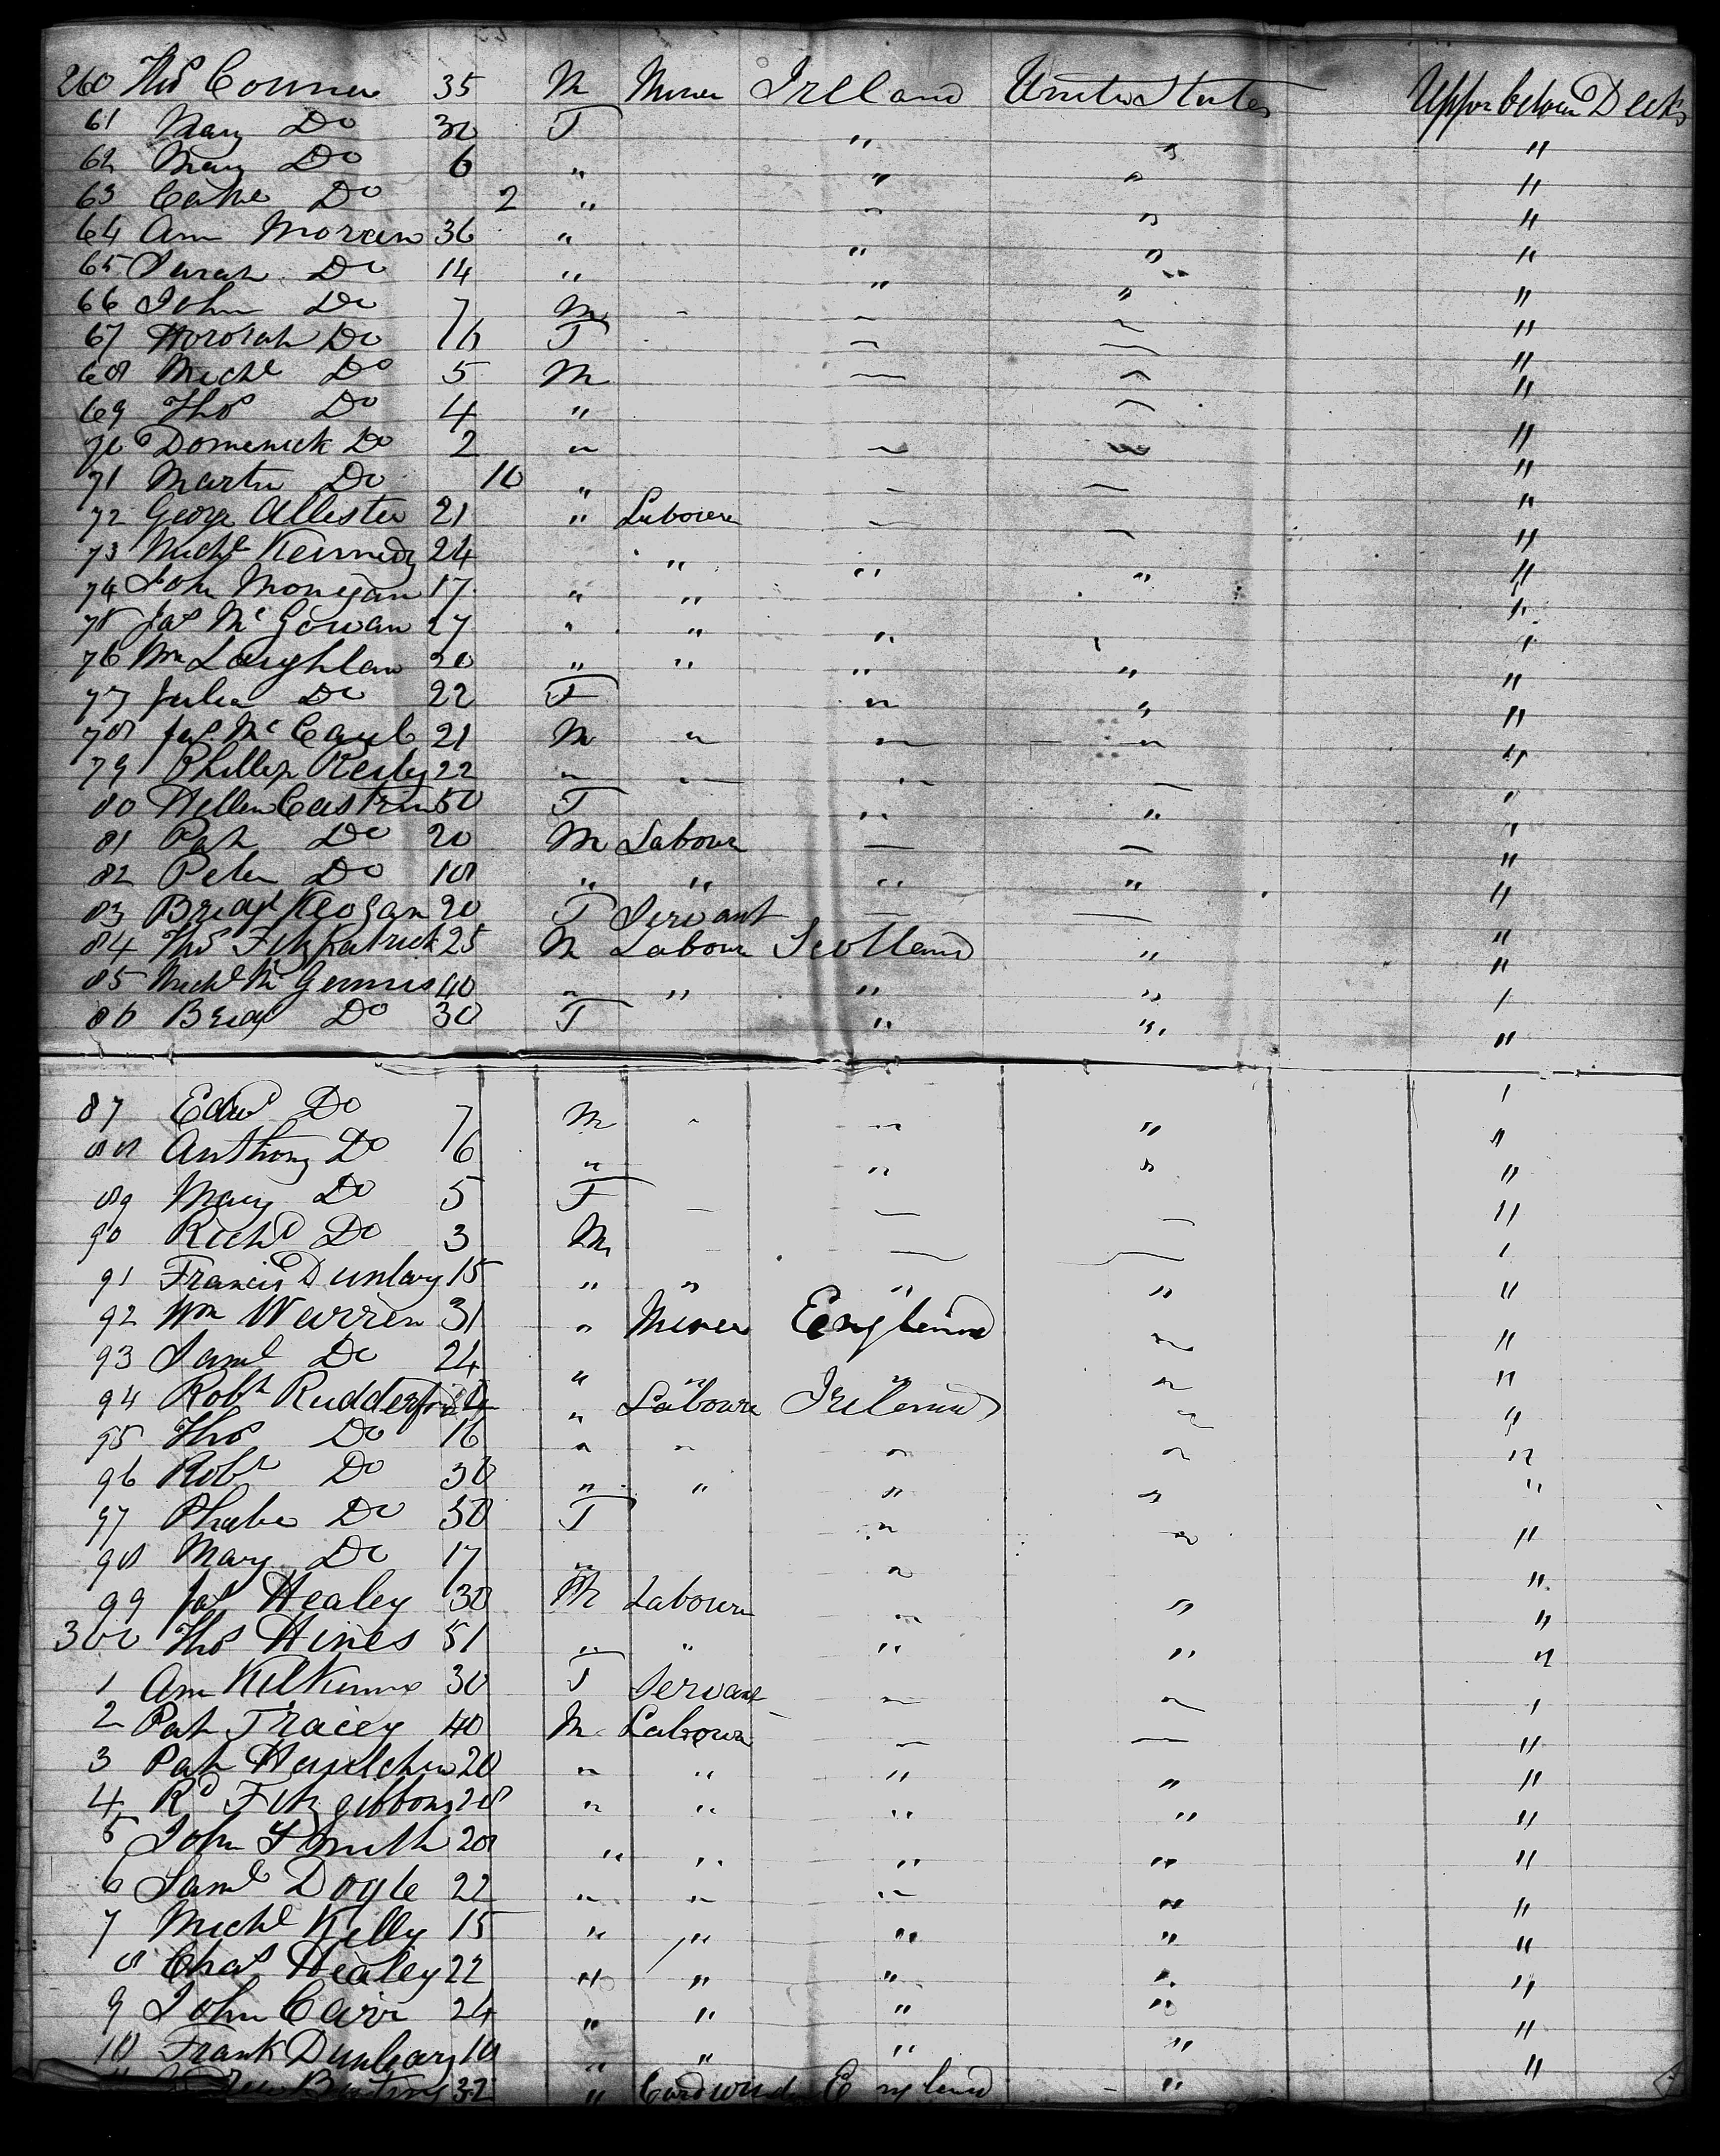 260 Thos Connor 35 M Miner Ireland United States Upper between Decks
61 Mary Do 30 F " " "
62 Mary Do 6 " " " "
63 Cathe Do 2 " " " "
64 Ann Moran 36 " " " "
65 Sarah Do 14 " " " "
66 John Do 7 M " " "
67 Honorah Do 6 F " " "
68 Michl Do 5 M " " "
69 Thos Do 4 " " "
70 Domenick Do 2 " " " "
71 Martin Do 10 " " " "
72 George Allester 21 " Labourer " " "
73 Michl Kennedy 24 " " " "
74 John Monegan 17 " " "
75 Jas McGowan 27 " " " "
76 Wm Laughlan 20 " " " " "
77 Julia Do 22 F " " "
78 Jas McCaul 21 M " " " "
79 Phillip Reily 22 " " " " "
80 Hellen 50 F " " "
81 Pat Do 20 M Labour " " "
82 Peter Do 18 " " " " "
83 Bridgt Keogan 20 F Servant " " "
84 Thos Fitzpatrick 25 M Labour Scotland " "
85 Michl McGennis 40 " " " " "
86 Bridg Do 30 F " " "
87 Edwd Do 7 M " " "
88 Anthony Do 6 " " " "
89 Mary Do 5 F " "
90 Richd Do 3 M " " "
91 Francis Dunlavy 15 " " " " "
92 Wm Warren 31 " Miner England " "
93 Saml Do 24 " " " " "
94 Robt Rudderford " Labourer Ireland " "
95 Thos Do 16 " " " " "
96 Robt Do 30 " " " " "
97 Phabe Do 50 F " " "
98 Mary Do 17 " " "
99 Jas Healey 30 M Labourer " " "
300 Thos Hines 51 " " " " "
1 Ann Kilkenny 30 F Servant " " "
2 Pat Tracey 40 M Labour " " "
3 Pat 20 " " " " "
4 Rd Fitzgibbons 28 " " " " "
5 John Smith 20 " " " " "
6 Saml Dogle 22 " " " " "
7 Michl Kelly 15 " " " " "
8 Chas Healey 22 " " " " "
9 John Carr 24 " " " " "
10 Frank Dunleavy 18 " " " " "
32 " England "